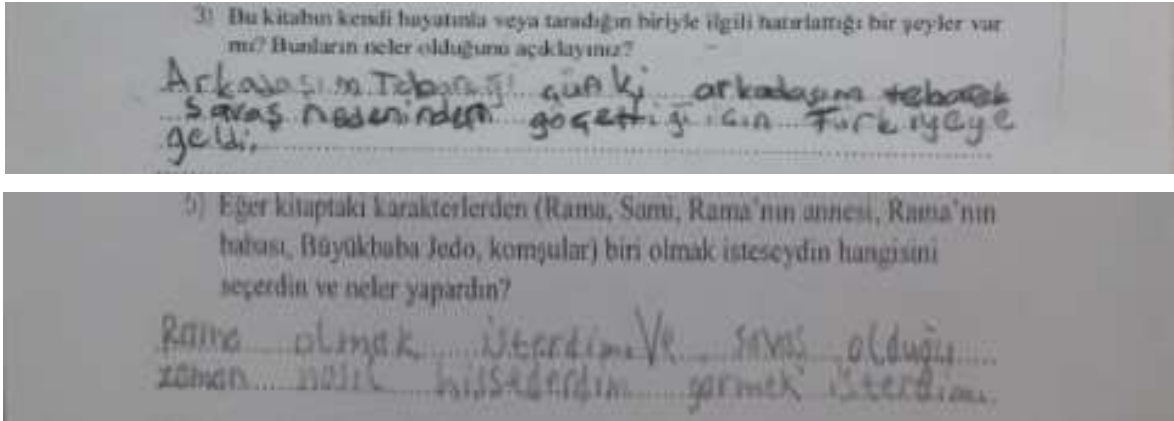 3) Bu kitabın kendi hayatınla veya tanıdığın biriyle ilgili hatırlattığı bir şeyler var
mı? Bunların neler olduğunu açıklayınız?
Arkadaşım Tebareği çünki arkadaşım tebarek
Savaş nedeninden göçettiği için Türkiyeye
geldi.
5) Eğer kitaptaki karakterlerden (Rama, Sami, Rama'nın annesi, Rama'nın
babası, Büyükbaba Jedo, komşular) biri olmak isteseydin hangisini
seçerdin ve neler yapardın?
Rama olmak isterdim. Ve savaş olduğu
zaman nasıl hissederdim görmek isterdim.